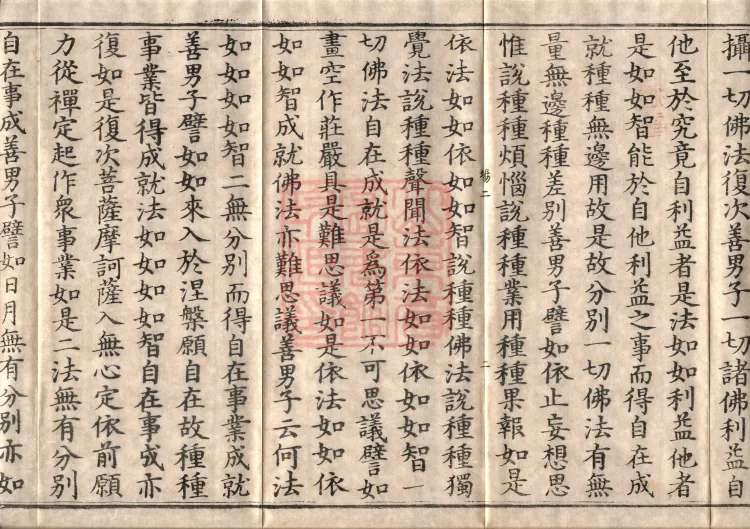 攝一切佛法復次善男子一切諸佛利益自
他至於究竟自利益者是法如如利益他者
是如如智能於自他利益之事而得自在成
就種種無邊用故是故分別一切佛法有無
量無邊種種差別善男子譬如依止妄想思
惟說種種煩惱說種種業用種種果報如是
依法如如依如如智說種種佛法說種種獨
覺法說種種聲聞法依法如如依如如智一
切佛法自在成就是爲第一不可思議譬如
畫空作莊嚴具是難思議如是依法如如依
如如智成就佛法亦難思議善男子云何法
如如如如智二無分別而得自在事業成就
善男子譬如如來入於涅槃願自在故種種
事業皆得成就法如如如如智自在事成亦
復如是復次菩薩摩訶薩入無心定依前願
力從禪定起作衆事業如是二法無有分別
自在事成善男子譬如日月無有分別亦如